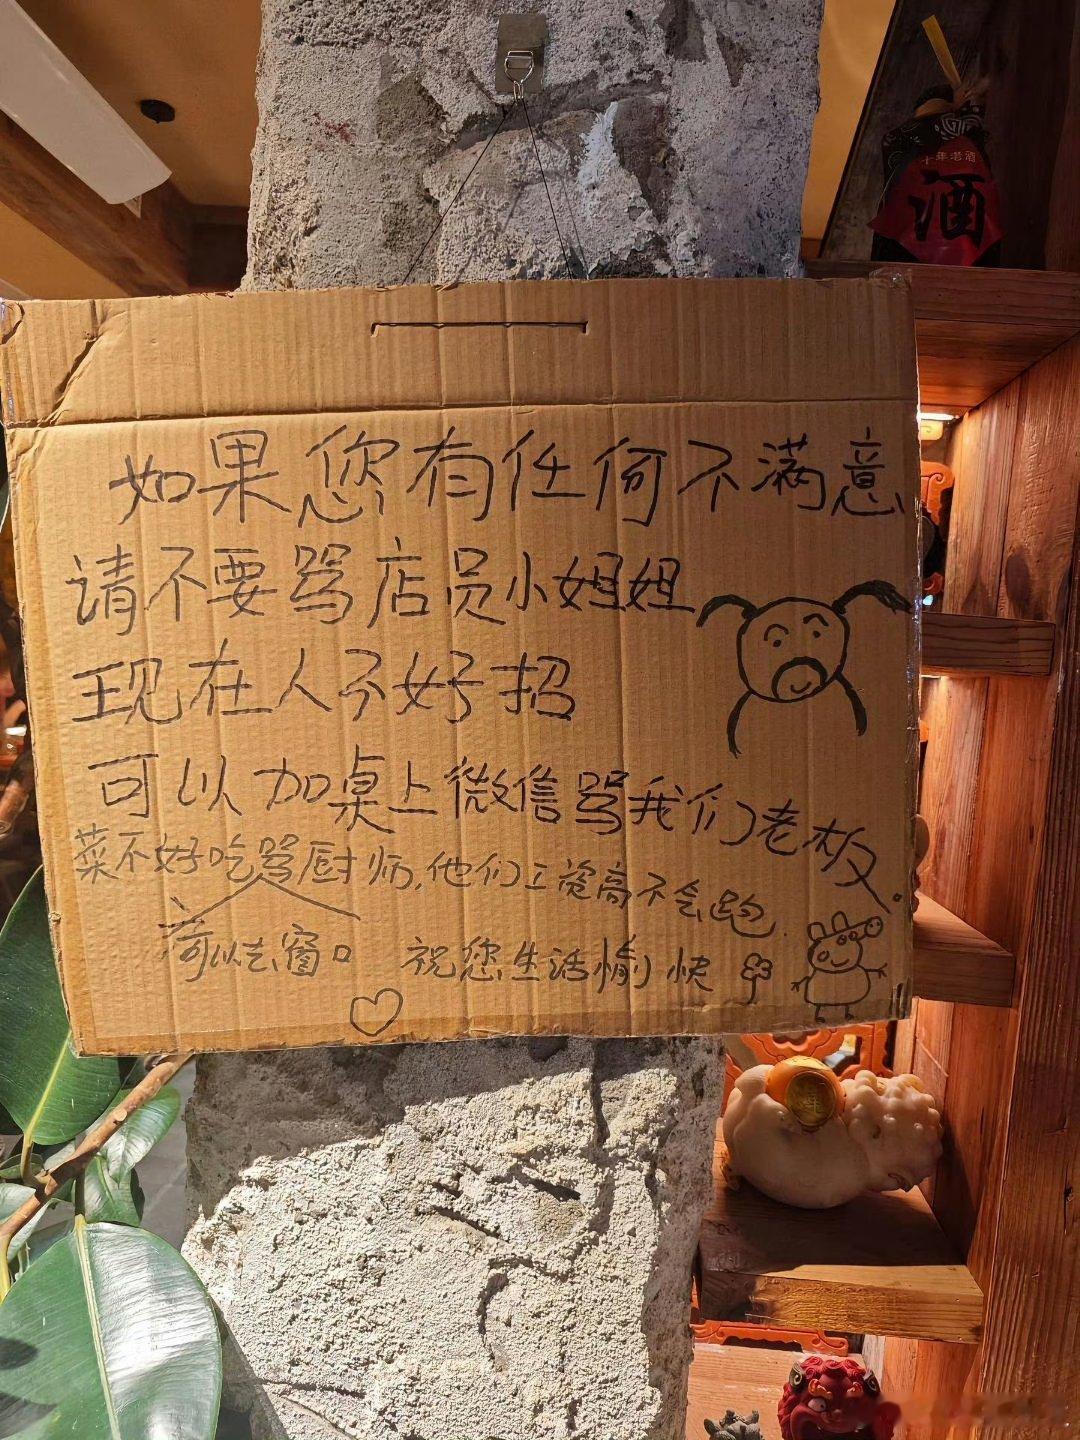 十年老酒
酒
如果您有任何不满意
请不要骂店员小姐姐
现在人不好招
可以加桌上微信骂我们老板
菜不好吃骂厨师,他们工资高不会跑.
可以去窗口
祝您生活愉快